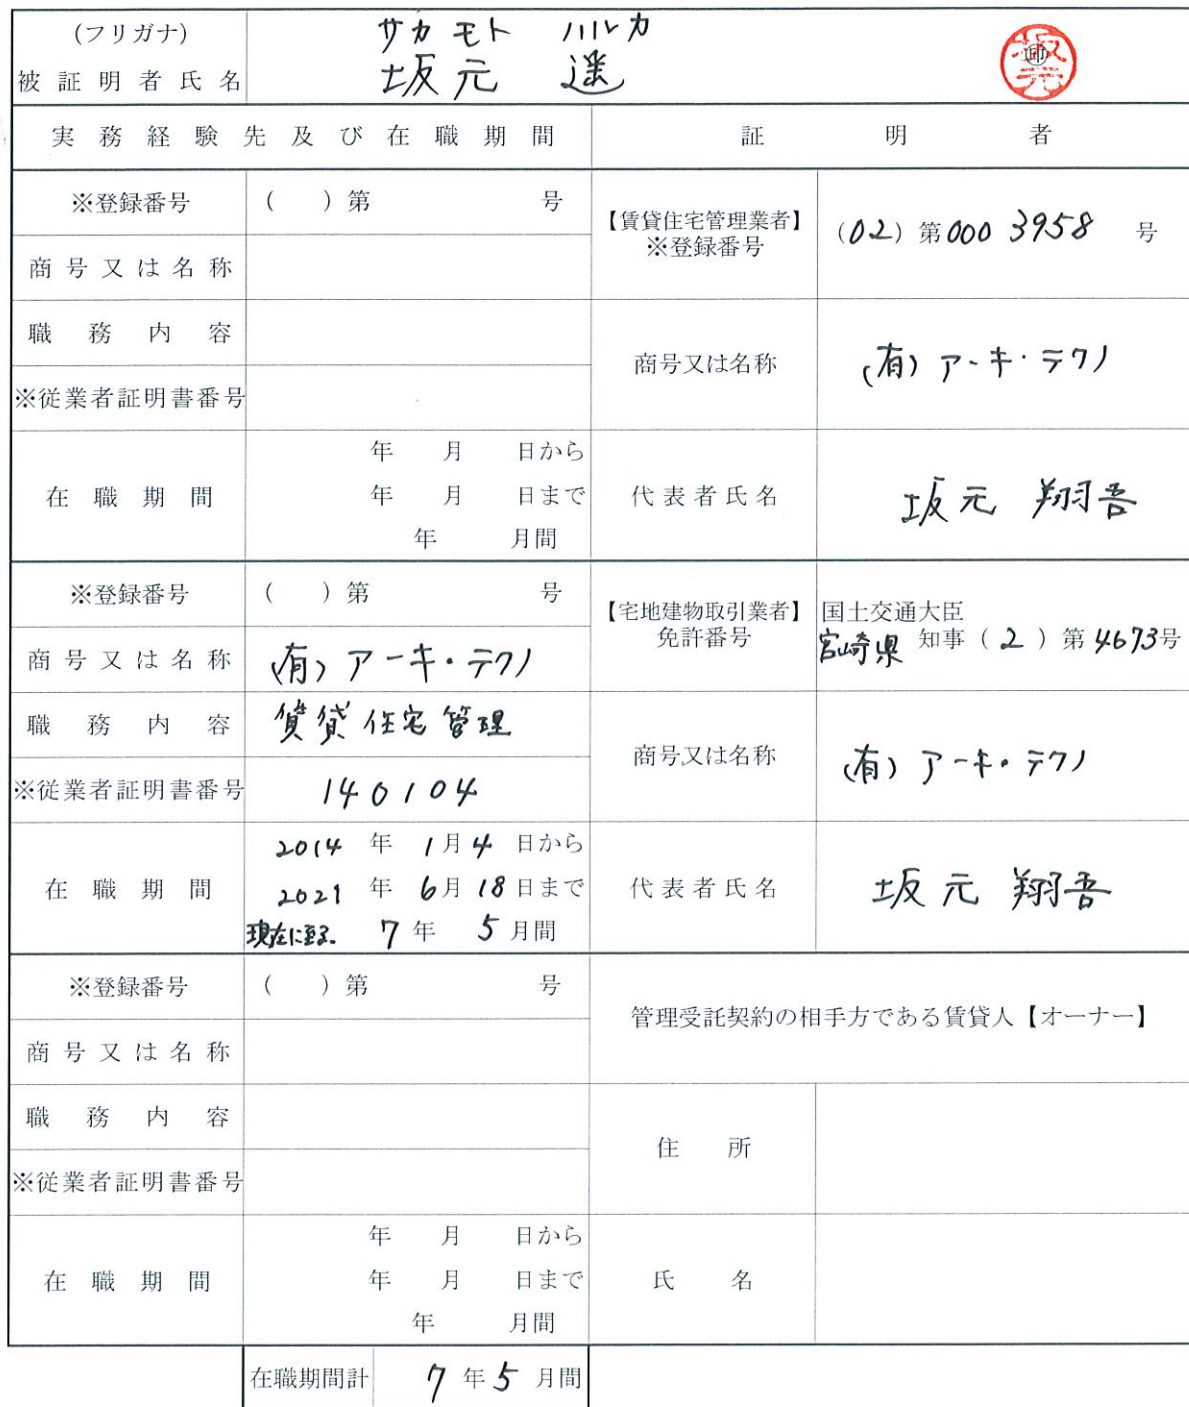 (フリガナ) サカモト ハルカ
被証明者氏名 坂元 遥 ㊞
実務経験先及び在職期間 証明者
※登録番号 ( )第 号
商号又は名称
職務内容
※従業者証明書番号
在職期間
年 月 日から
年 月 日まで
年 月間
【賃貸住宅管理業者】
※登録番号
(02)第000 3958 号
商号又は名称 (有)アーキ・テクノ
代表者氏名 坂元 翔吾
※登録番号 ( )第 号
商号又は名称 (有)アーキ・テクノ
職務内容 賃貸住宅管理
※従業者証明書番号 140104
在職期間
2014 年 1月4 日から
2021 年 6月18日まで
現在に至る。 7年 5月間
【宅地建物取引業者】
免許番号
国土交通大臣
宮崎県 知事(2)第4673号
商号又は名称 (有)アーキ・テクノ
代表者氏名 坂元 翔吾
※登録番号 ( )第 号
商号又は名称
職務内容
※従業者証明書番号
在職期間
年 月 日から
年 月 日まで
年 月間
管理受託契約の相手方である賃貸人【オーナー】
住所
氏名
在職期間計 7年5月間